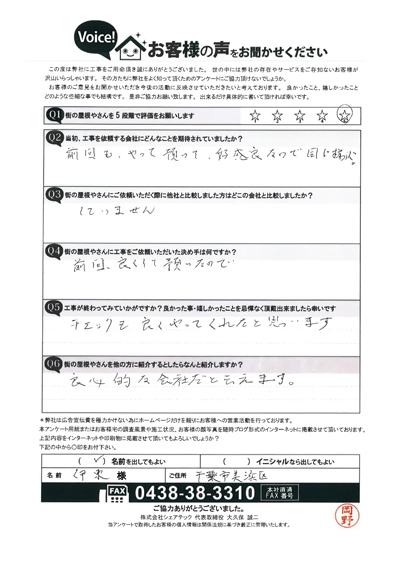 Voice!
お客様の声をお聞かせください
この度は弊社に工事をご用命頂き誠にありがとうございました。 世の中には弊社の存在やサービスをご存知ないお客様が
沢山いらっしゃいます。 その方たちに弊社をよく知って頂くためのアンケートにご協力頂けないでしょうか。
お客様のご意見をお聞かせいただき今後の活動に反映させていただきたいと考えております。 良かったこと、嬉しかったこと
どのような些細な事でも結構です。 是非ご協力お願い致します。 出来るだけ具体的に書いて頂ければ幸いです。
Q1 街の屋根やさんを5段階で評価をお願いします ☆ ☆ ☆ ☆ ☆
Q2 当初、工事を依頼する会社にどんなことを期待されていましたか？
前回も、やって頂って、好感良なので同じ
Q3 街の屋根やさんにご依頼いただく際に他社と比較しました方はどこの会社と比較しましたか？
していません
Q4 街の屋根やさんに工事をご依頼いただいた決め手は何ですか？
前回、良くして頂ったので
Q5 工事が終わってみていかがですか？良かった事・嬉しかったことを忌憚なく頂戴出来ましたら幸いです
チェックも良くやってくれたと思っています
Q6 街の屋根やさんを他の方に紹介するとしたらなんと紹介しますか？
良心的な会社だと云えます。
＊弊社は広告宣伝費を極力かけない為にホームページだけを頼りにお客様への営業活動を行っております。
本アンケート用紙またはお客様宅での調査風景や施工状況、お客様の顔写真を随時ブログ形式のインターネットに掲載させて頂いております。
上記内容をインターネットや印刷物に掲載させて頂いてもよろしいでしょうか？
下記の中から○印をお付下さい。
( ✓ ) 名前を出してもよい ( ) イニシャルなら出してもよい
名前 伊東 様 ご住所 千葉市美浜区
FAX 0438-38-3310 本社直通 FAX番号
ご協力ありがとうございました。
株式会社シェアテック 代表取締役 大久保 誠二
当アンケートで取得したお客様の個人情報は関係法規に基づき厳正に管理いたします。
岡野